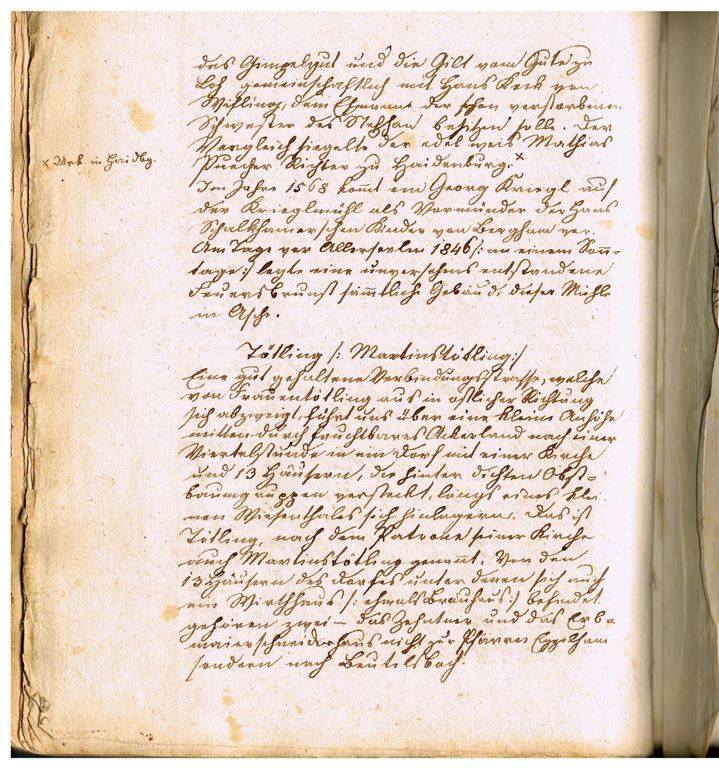 das Gimpelgut und die Gilt vom Gute zu
Loh gemeinschaftlich mit Hans Keck von
Wifling, dem Ehmanne der schon verstorbenen
Schwester des Stephan besitzen solle. Der
Vergleich siegelte der edel weis Mathias
x Urk. in Haidbg.
Puecher Richter zu Haidenburg.x
Im Jahre 1568 kommt ein Georg Kriegl auf
der Krieglmühl als Vormünder der Hans
Schalkhamerschen Kinder von Bergham vor.
Am Tage vor Allerseeln 1846 /: an einem Sonn-
tage :/ legte eine unversehens entstandene
Feuersbrunst sämmtliche Gebäude dieser Mühle
in Asche.
Tötling /: Martinstötling :/
Eine gut gehaltene Verbindungsstrasse, welche
von Frauentötling aus in östlicher Richtung
sich abzweigt, führt uns über eine kleine Anhöhe
mitten durch fruchtbares Ackerland nach einer
Viertelstunde in ein Dorf mit einer Kirche
und 13 Häusern, die hinter dichten Obst-
baumgruppen versteckt, längs eines klei-
nen Wiesenthales sich hinlagern. Das ist
Tötling, nach dem Patrone seiner Kirche
auch Martinstötling genannt. Von den
13 Häusern des Dorfes unter denen sich auch
ein Wirthhaus /: ehmals Bräuhaus :/ befindet
gehören zwei – das Zehntner und das Erb-
maierschneiderhaus nicht zur Pfarrei Egglham
sondern nach Beutelsbach.